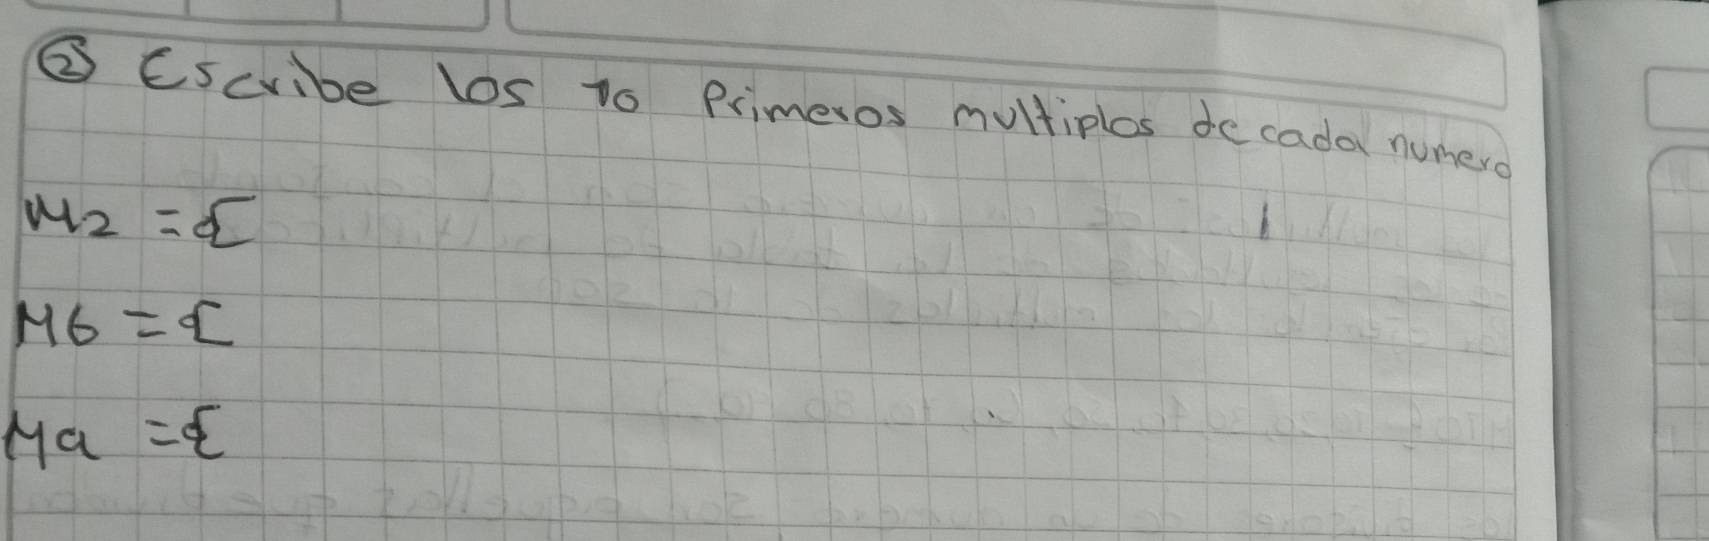 ② Escribe los 10 Primeros multiplos de cada numero
M2 = {
M6 = {
Ma = {